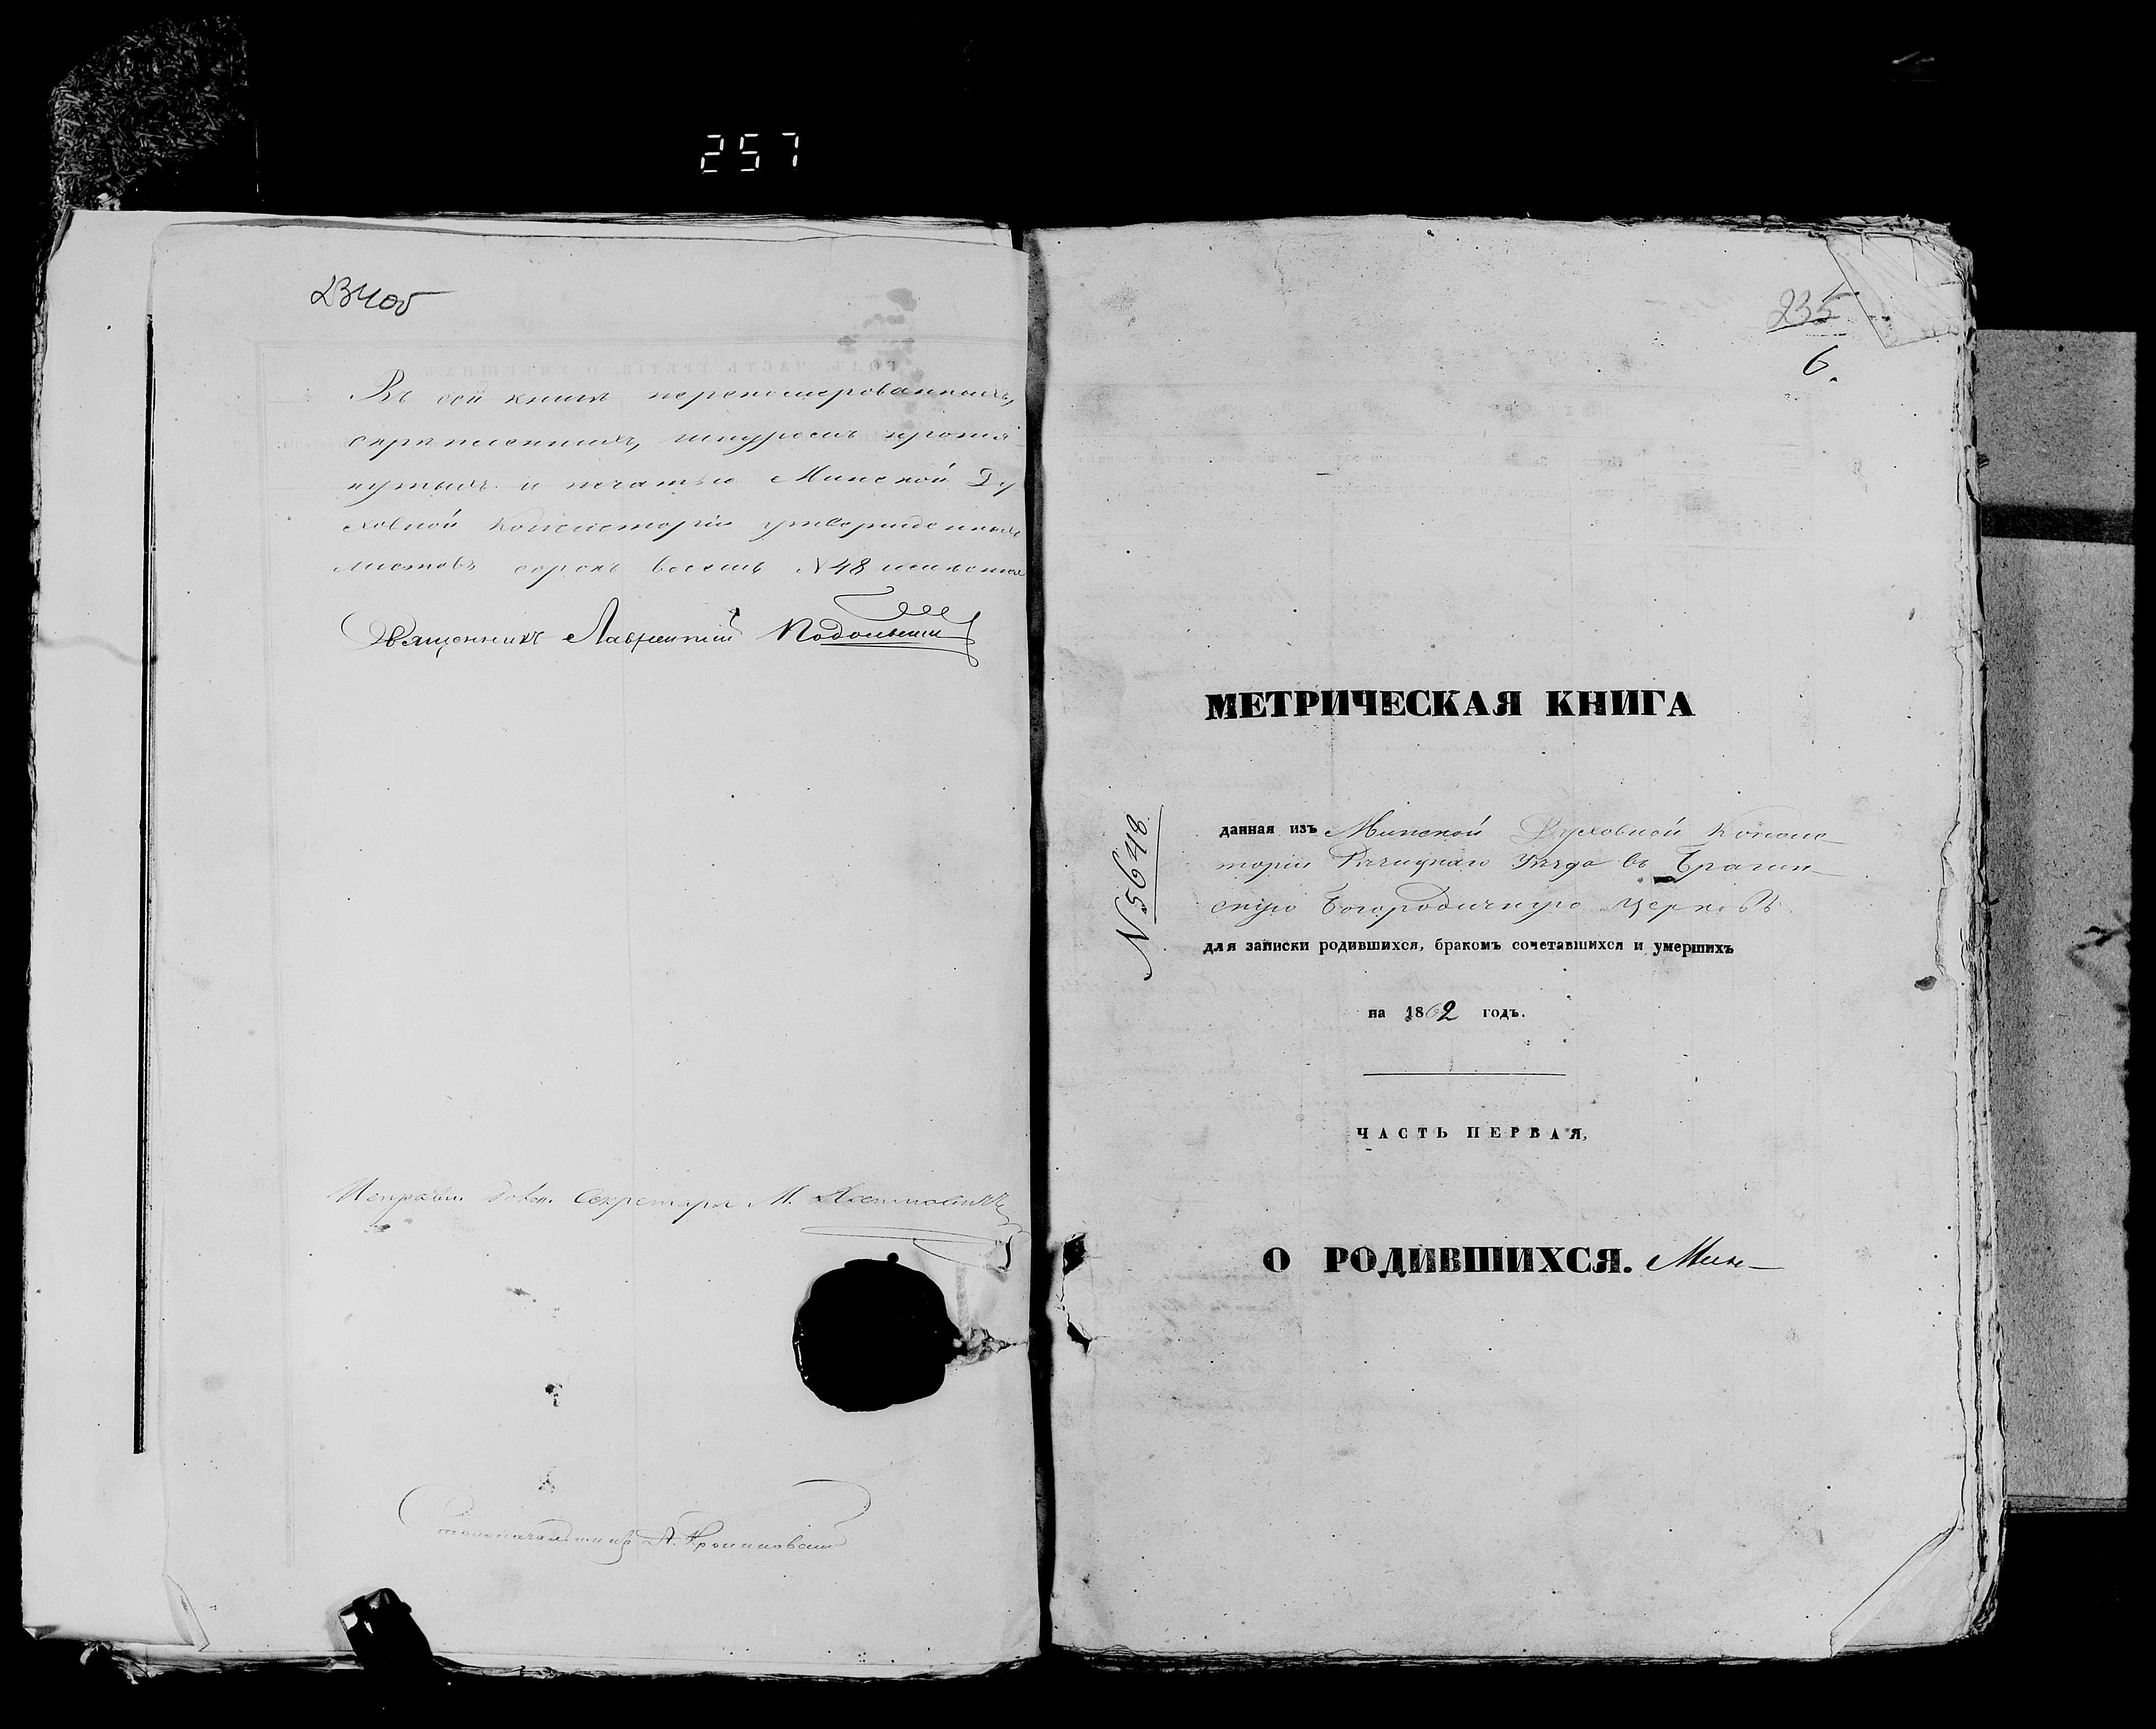 257
234об
Въ сей книгѣ перенумерованныхъ,
скрепленныхъ, шнуромъ протя
нутыхъ и печатью Минской Ду
ховной Консисторіи утвержденныхъ
листовъ сорокъ восемь N 48
Священникъ Лаврентій Подольский
Секретаря М.
Столоначальникъ А.
235
6.
МЕТРИЧЕСКАЯ КНИГА
N 5648
данная изъ Минской Духовной Консис
торіи Рѣчицкаго Уѣзда въ Брагин
скую Богородичную церковь
для записки родившихся, бракомъ сочетавшихся и умершихъ
на 1862 годъ.
ЧАСТЬ ПЕРВАЯ,
О РОДИВШИХСЯ. Мин-